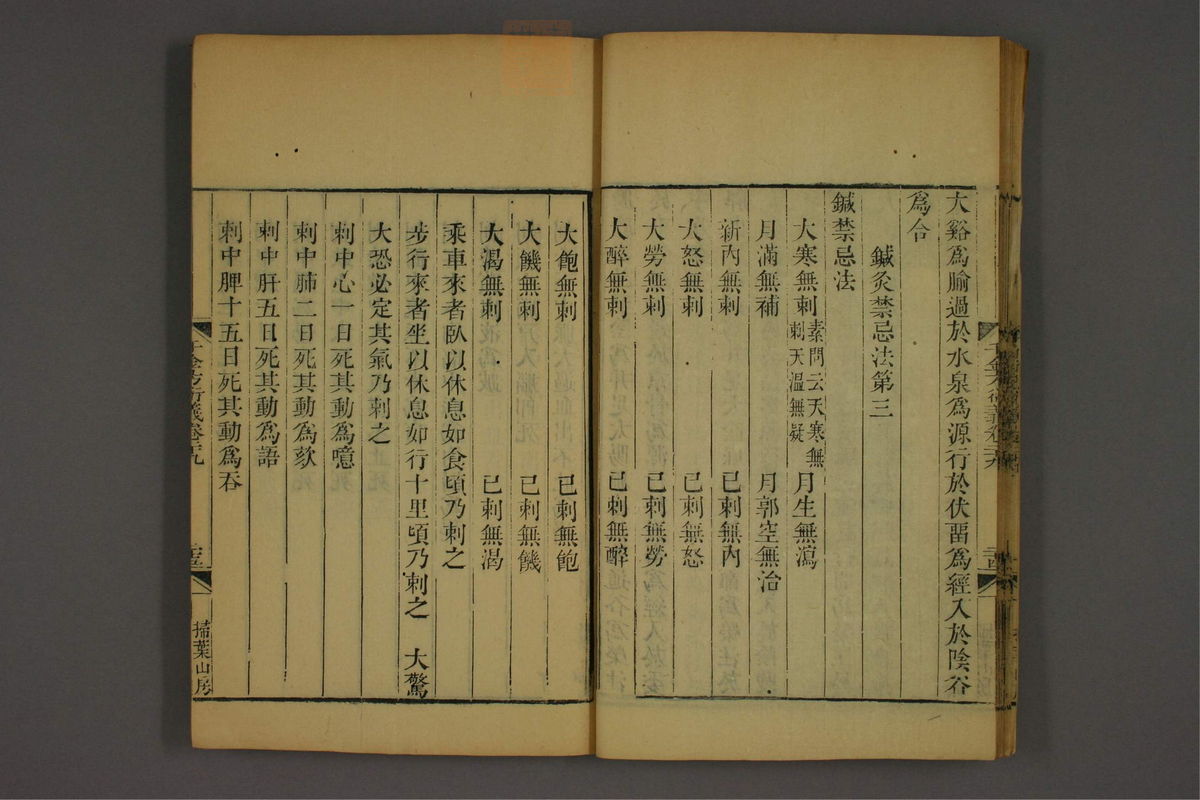 大谿為腧過於水泉為源行於伏畱為經入於陰谷
為合
鍼灸禁忌法第三
鍼禁忌法
大寒無刺 素問云天寒無刺天溫無疑 月生無瀉
月滿無補 月郭空無治
新內無刺 已刺無內
大怒無刺 已刺無怒
大勞無刺 已刺無勞
大醉無刺 已刺無醉
大飽無刺 已刺無飽
大饑無刺 已刺無饑
大渴無刺 已刺無渴
乘車來者臥以休息如食頃乃刺之
步行來者坐以休息如行十里頃乃刺之 大驚
大恐必定其氣乃刺之
刺中心一日死其動為噫
刺中肺二日死其動為欬
刺中肝五日死其動為語
刺中脾十五日死其動為吞
千金方衍義卷二十九
二十五
掃葉山房